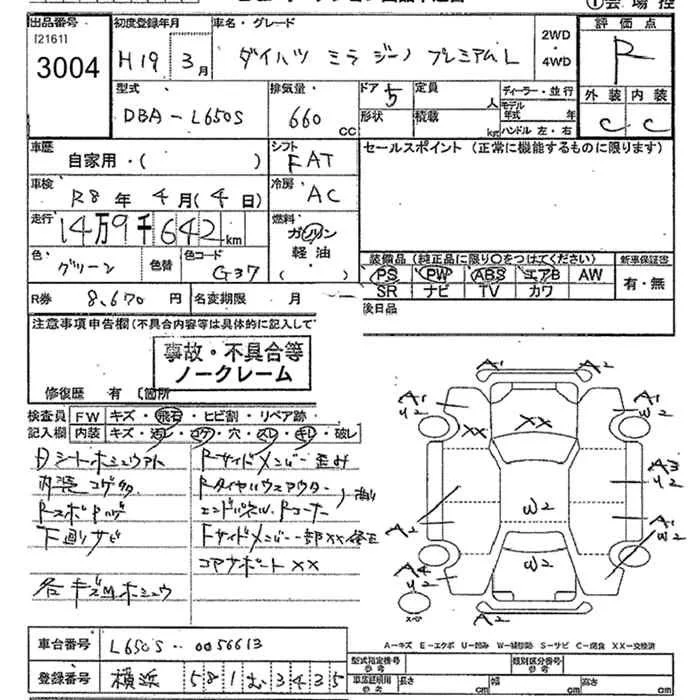 出品番号
[2161]
3004
初度登録年月
H19 3月
車名・グレード
ダイハツ ミラ ジーノ プレミアムL
2WD
・
4WD
評価点
R
外装 内装
C C
型式
DBA-L650S
排気量
660 CC
ドア 5
形状
定員 人
積載 kg
ディーラー・並行
モデル年式 年
ハンドル 左・右
車歴
自家用・( )
シフト
FAT
車検
R8年 4月(4日)
冷房
AC
走行
14万9千642km
燃料
ガソリン
軽油
( )
色
グリーン
色替
色コード
G37
R券 8,670円
名変期限 月
セールスポイント(正常に機能するものに限ります)
装備品(純正品に限り○をつけてください)
PS PW ABS エアB AW
SR ナビ TV カワ
新車保証書
有・無
後日品
注意事項申告欄(不具合内容等は具体的に記入して
事故・不具合等
ノークレーム
修復歴 有〔箇所
検査員記入欄
FW キズ・飛石・ヒビ割・リペア跡
内装 キズ・汚レ・コゲ・穴・スレ・キレ・破レ
下廻りサビ
Rサイドメンバー歪み
コアサポートXX
A1 A2
A1
U2
A1
W2
XX XX
A3
U2
A2
W2
A1
W2
A4
U2
W2
スペア
A2
A-キズ E-エクボ U-凹み W-補修跡 S-サビ C-腐食 XX-交換済
車台番号 L650S-0056613
登録番号 横浜 581 む 3435
型式指定番号
参考
類別区分番号
参考
車庫証明用
参考
長さ cm 幅 cm 高さ cm